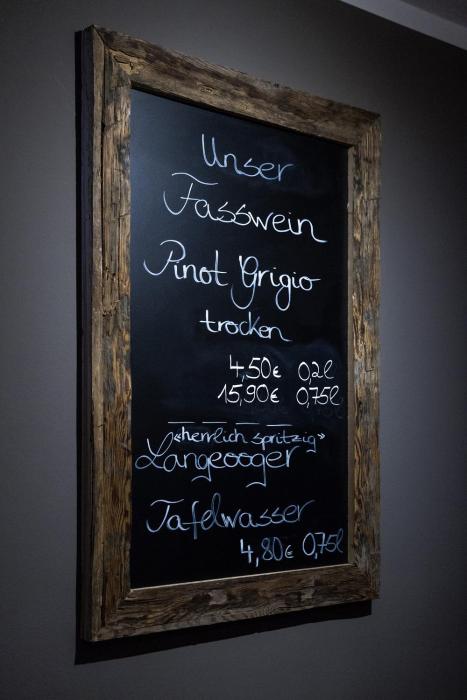 Unser
Fasswein
Pinot Grigio
trocken
4,50€ 0,2l
15,90€ 0,75l
«herrlich spritzig»
Langeooger
Tafelwasser
4,80€ 0,75l